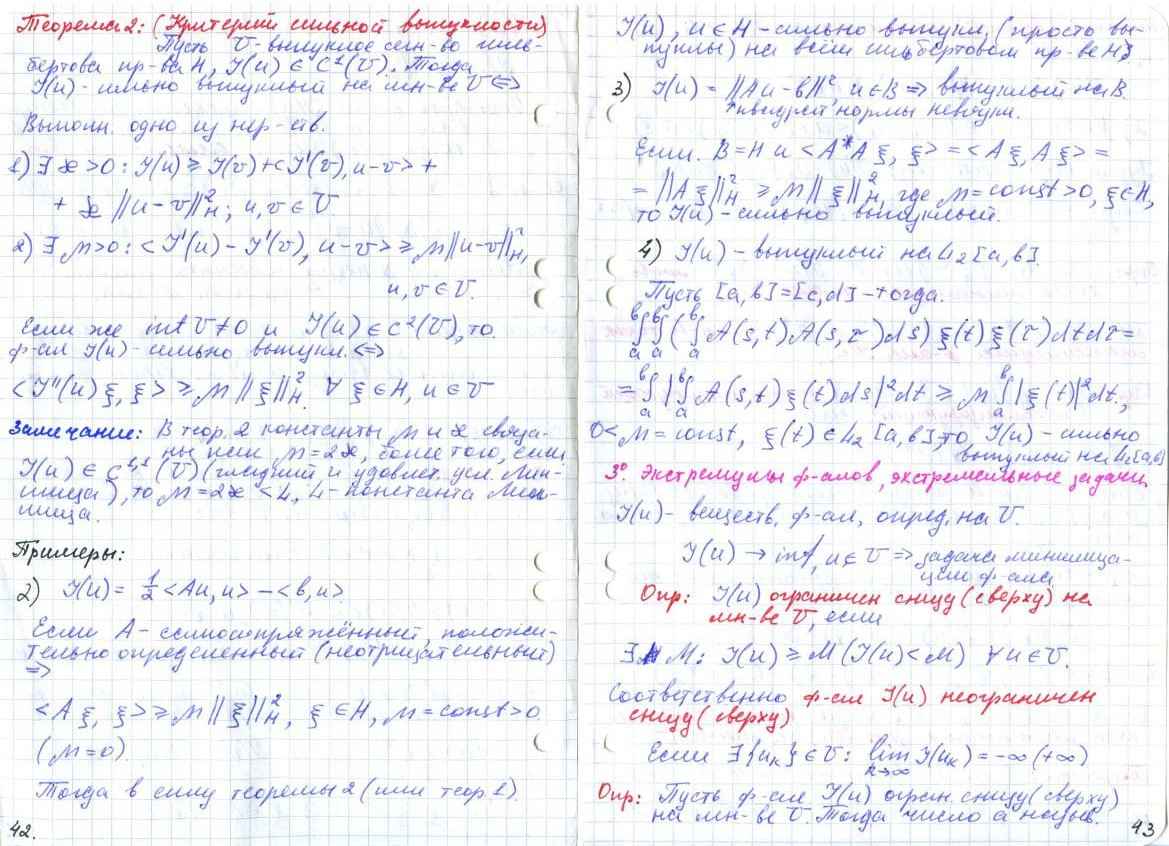 Теорема 2: (Критерий сильной выпуклости)
Пусть U - выпуклое мн-во гиль-
бертова пр-ва H, J(u) ∈ C¹(U). Тогда
J(u) - сильно выпуклый на мн-ве U ⇔
Выполн. одно из нер-ств.
1) ∃ æ > 0 : J(u) ≥ J(v) + <J'(v), u-v> +
+ æ ||u-v||²_H ; u, v ∈ U
2) ∃ μ > 0 : <J'(u) - J'(v), u-v> ≥ μ||u-v||²_H,
u, v ∈ U.
Если же int U ≠ 0 и J(u) ∈ C²(U), то
ф-ал J(u) - сильно выпукл. ⇔
<J''(u)ξ, ξ> ≥ μ||ξ||²_H ∀ ξ ∈ H, u ∈ U
Замечание: В теор. 2 константы μ и æ связа-
ны как μ = 2æ, более того, если
J(u) ∈ C^{1,1}(U) (гладкий и удовлет. усл. Лип-
шица), то μ = 2æ < L, L - константа Лип-
шица.
Примеры:
2) J(u) = ½ <Au, u> - <b, u>
Если A - самосопряжённый, положи-
тельно определенный (неотрицательный)
⇒
<Aξ, ξ> ≥ μ||ξ||²_H, ξ ∈ H, μ = const > 0
(μ = 0)
Тогда в силу теоремы 2 (или теор. 1).
42.
J(u), u ∈ H - сильно выпукл. (просто вы-
пуклы) на всём гильбертовом пр-ве H
3) J(u) = ||Au - b||² u ∈ B ⇒ выпуклый на B.
↑ квадрат нормы невязки.
Если B = H и <A*Aξ, ξ> = <Aξ, Aξ> =
= ||Aξ||²_H ≥ μ||ξ||²_H, где μ = const > 0, ξ ∈ H,
то J(u) - сильно выпуклый.
4) J(u) - выпуклый на L₂[a, b].
Пусть [a, b] = [c, d] - тогда.
∫_a^b ∫_a^b (∫_a^b A(s,t) A(s,τ) ds) ξ(t) ξ(τ) dt dτ =
= ∫_a^b |∫_a^b A(s,t) ξ(t) ds|² dt ≥ μ ∫_a^b |ξ(t)|² dt,
0 < μ = const, ξ(t) ∈ L₂ [a, b], то J(u) - сильно
выпуклый на L₂[a, b]
3°. Экстремумы ф-алов, экстремельные задачи
J(u) - веществ. ф-ал, опред. на U.
J(u) → inf, u ∈ U ⇒ задача минимиза-
ции ф-ала
Опр: J(u) ограничен снизу (сверху) на
мн-ве U, если
∃ M : J(u) ≥ M (J(u) < M) ∀ u ∈ U.
Соответственно ф-ал J(u) неограничен
снизу (сверху)
Если ∃ {u_k} ∈ U : lim_{k→∞} J(u_k) = -∞ (+∞)
Опр: Пусть ф-ал J(u) огран. снизу (сверху)
на мн-ве U. Тогда число a назыв.
43